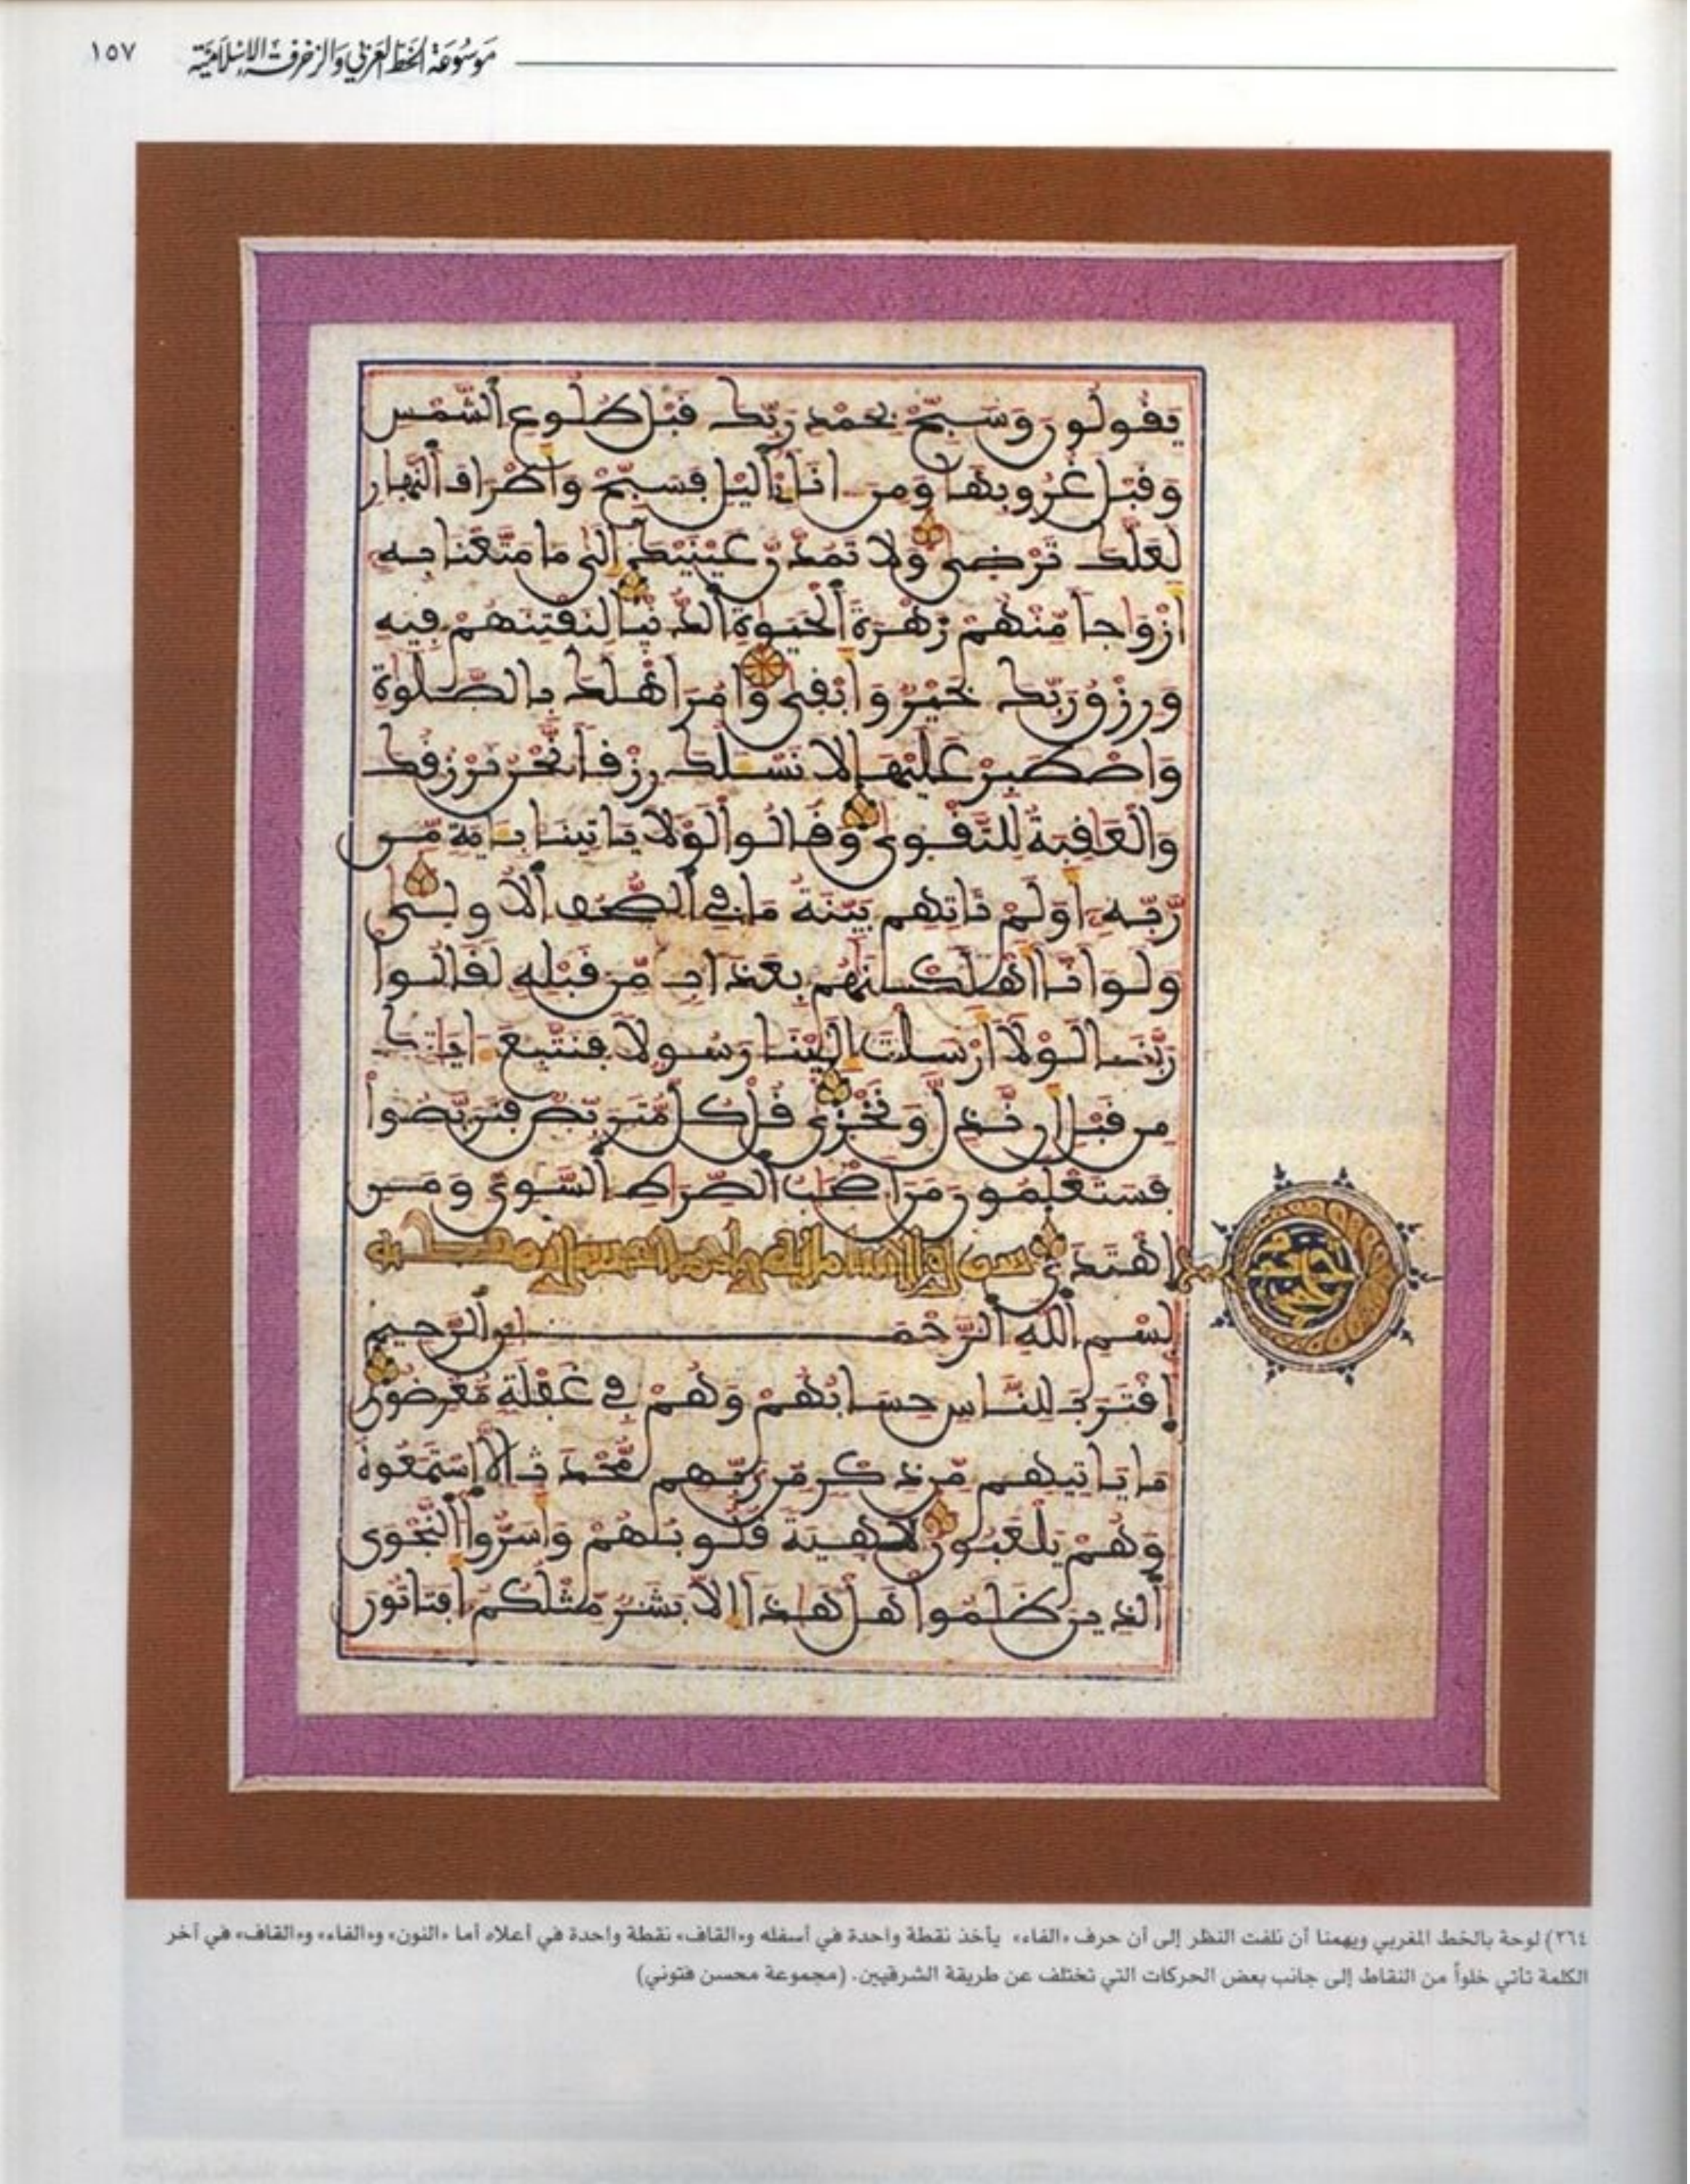 موسوعة الخط العربي والزخرفة الإسلامية ١٥٧
يَقُولُونَ وَسَبِّحْ بِحَمْدِ رَبِّكَ قَبْلَ طُلُوعِ اَ۬لشَّمْسِ
وَقَبْلَ غُرُوبِهَا وَمِنَ اٰنَآءِےْ اِ۬ليْلِ فَسَبِّحْ وَأَطْرَافَ اَ۬لنَّهارِ
لَعَلَّكَ تَرْضىٰ وَلَا تَمُدَّنَّ عَيْنَيْكَ إِلىٰ مَا مَتَّعْنَا بِهِ
أَزْوَاجاً مِّنْهُمْ زَهْرَةَ اَ۬لْحَيَوٰةِ اِ۬لدُّنْيا لِنَفْتِنَهُمْ فِيهِ
وَرِزْقُ رَبِّكَ خَيْرٌ وَأَبْقىٰ وَامُرَ اَهْلَكَ بِالصَّلَوٰةِ
وَاصْطَبِرْ عَلَيْهَا لَا نَسْـَٔلُكَ رِزْقاً نَّحْنُ نَرْزُقُكَ
وَالْعَٰقِبَةُ لِلتَّقْوىٰ وَقَالُوا لَوْلَا يَاتِينَا بِـَٔايَةٍ مِّن
رَّبِّهِ أَوَلَمْ تَاتِهِم بَيِّنَةُ مَا فِي اِ۬لصُّحُفِ اِ۬لُاولىٰ
وَلَوَ اَنَّا أَهْلَكْنَٰهُم بِعَذَابٍ مِّن قَبْلِهِ لَقَالُوا
رَبَّنَا لَوْلَا أَرْسَلْتَ إِلَيْنَا رَسُولًا فَنَتَّبِعَ ءَايَٰتِكَ
مِن قَبْلِ أَن نَّذِلَّ وَنَخْزىٰ قُلْ كُلٌّ مُّتَرَبِّصٌ فَتَرَبَّصُوا
فَسَتَعْلَمُونَ مَنَ اَصْحَٰبُ اُ۬لصِّرَٰطِ اِ۬لسَّوِيِّ وَمَنِ
اِ۪هْتَدىٰ
بِسْمِ اِ۬للَّهِ اِ۬لرَّحْمَٰنِ اِ۬لرَّحِيمِ
اِ۪قْتَرَبَ لِلنَّاسِ حِسَابُهُمْ وَهُمْ فِي غَفْلَةٍ مُّعْرِضُونَ
مَا يَاتِيهِم مِّن ذِكْرٍ مِّن رَّبِّهِم مُّحْدَثٍ اِلَّا اَ۪سْتَمَعُوهُ
وَهُمْ يَلْعَبُونَ لَٰهِيَةً قُلُوبُهُمْ وَأَسَرُّوا اُ۬لنَّجْوَى
اَ۬لذِينَ ظَلَمُوا هَلْ هَٰذَا إِلَّا بَشَرٌ مِّثْلُكُمُ أَفَتَاتُونَ
٢٦٤) لوحة بالخط المغربي ويهمنا أن نلفت النظر إلى أن حرف «الفاء» يأخذ نقطة واحدة في أسفله و«القاف» نقطة واحدة في أعلاه أما «النون» و«الفاء» و«القاف» في آخر
الكلمة تأتي خلواً من النقاط إلى جانب بعض الحركات التي تختلف عن طريقة الشرقيين. (مجموعة محسن فتوني)